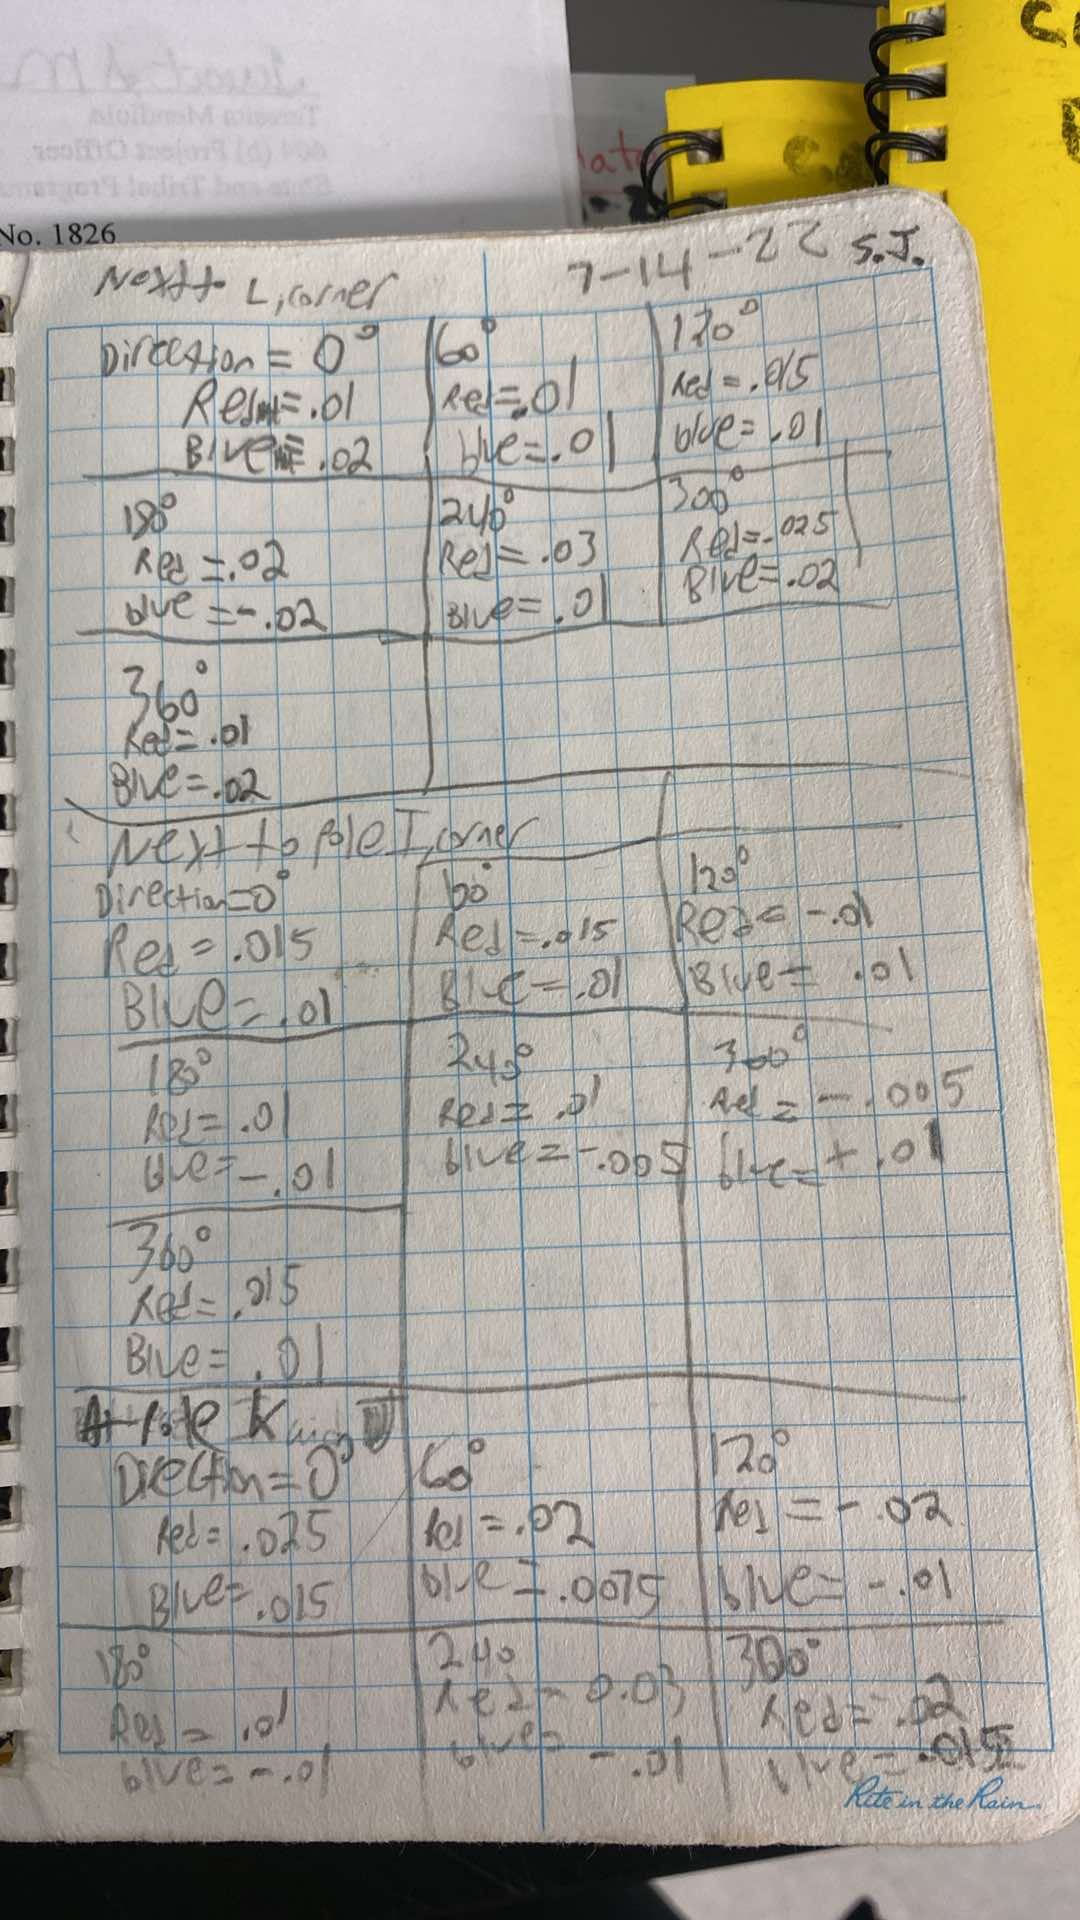 No. 1826
Next to L, corner
7-14-22 S.J.
Direction = 0°
Red = .01
Blue = .02
60°
Red = .01
blue = .01
120°
Red = .015
blue = .01
180°
Red = .02
blue = -.02
240°
Red = .03
Blue = .01
300°
Red = .025
Blue = .02
360°
Red = .01
Blue = .02
Next to Pole I, corner
Direction = 0°
Red = .015
Blue = .01
60°
Red = .015
Blue = .01
120°
Red = -.01
Blue = .01
180°
Red = .01
blue = -.01
240°
Red = .01
blue = -.005
300°
Red = -.005
blue = + .01
360°
Red = .015
Blue = .01
At Pole K
Direction = 0°
Red = .025
Blue = .015
60°
Red = .02
blue = .0075
120°
Red = -.02
blue = -.01
180°
Red = .01
blue = -.01
240
Red = 0.03
blue = -.01
300°
Red = .02
blue = .015
Rite in the Rain